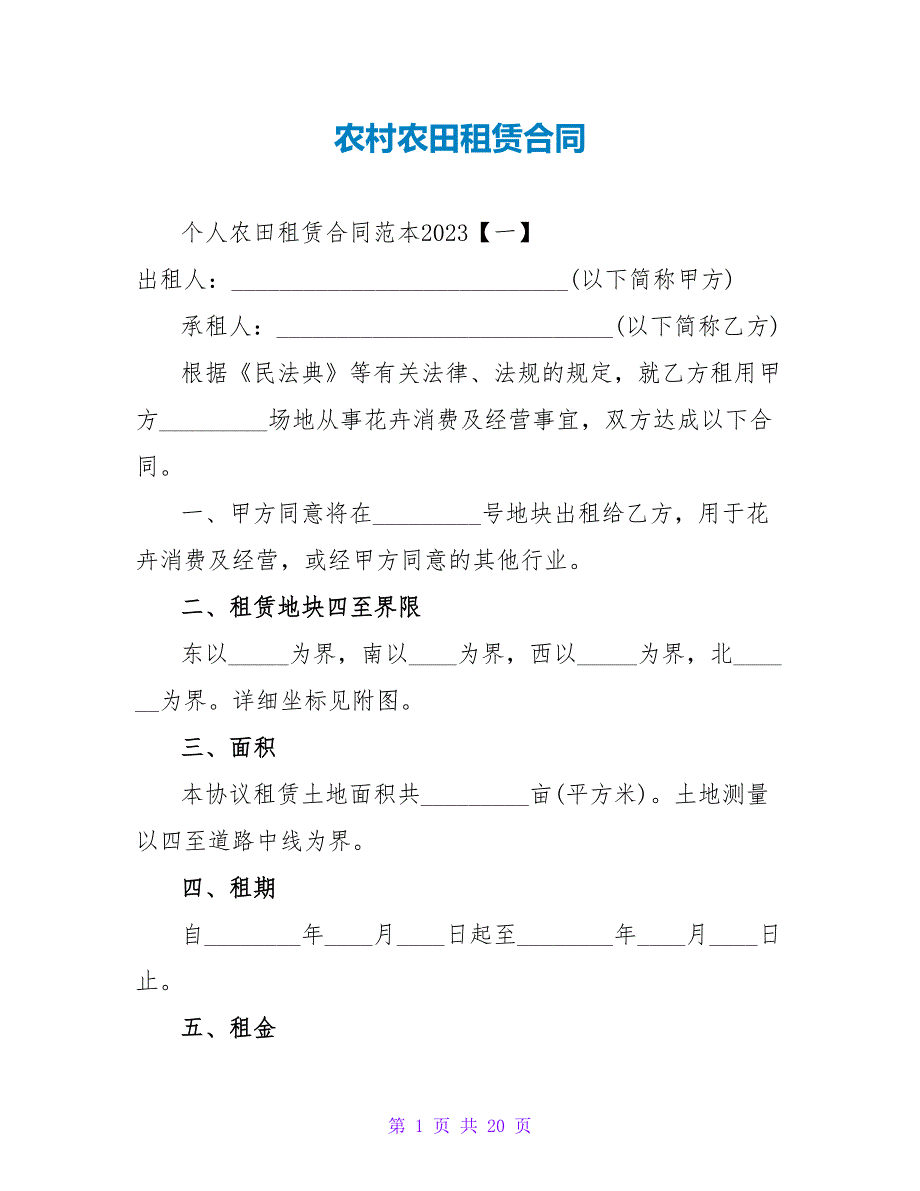 农村农田租赁合同
个人农田租赁合同范本2023【一】
出租人：____________________________(以下简称甲方)
承租人：____________________________(以下简称乙方)
根据《民法典》等有关法律、法规的规定，就乙方租用甲
方_________场地从事花卉消费及经营事宜，双方达成以下合
同。
一、甲方同意将在_________号地块出租给乙方，用于花
卉消费及经营，或经甲方同意的其他行业。
二、租赁地块四至界限
东以_____为界，南以____为界，西以_____为界，北____
__为界。详细坐标见附图。
三、面积
本协议租赁土地面积共_________亩(平方米)。土地测量
以四至道路中线为界。
四、租期
自________年____月____日起至________年____月____日
止。
五、租金
第 1 页 共 20 页